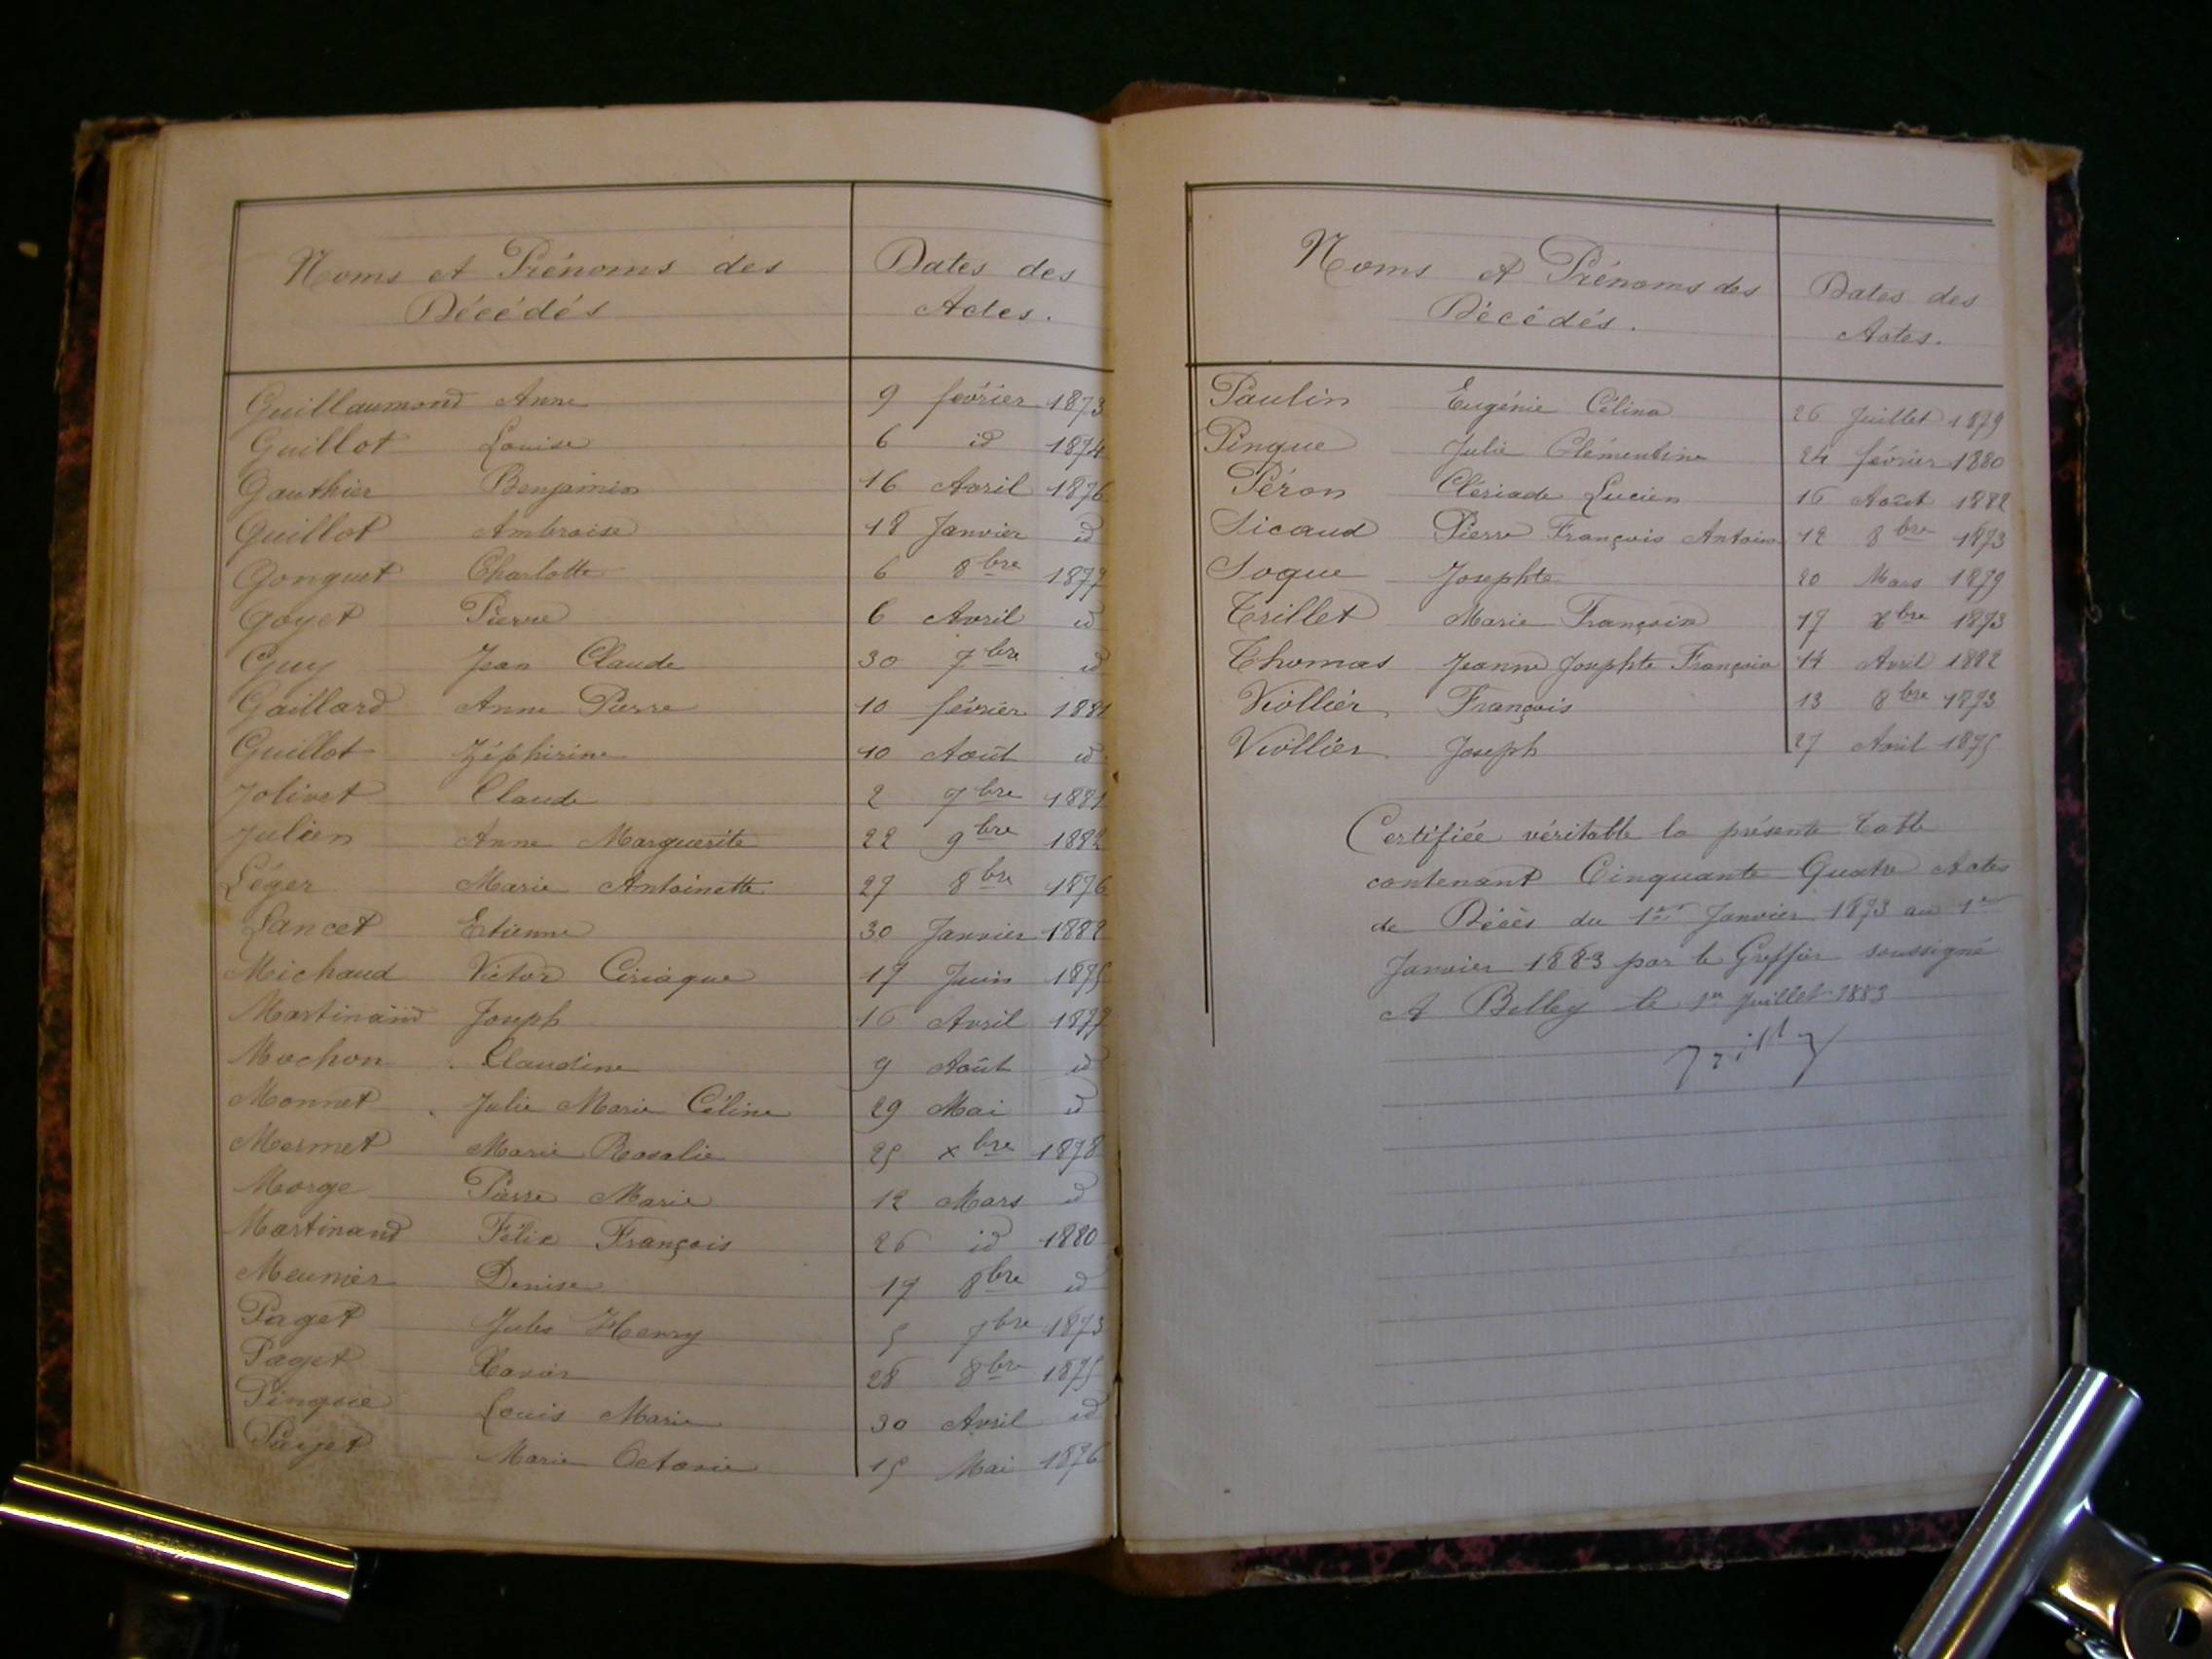 Noms et Prénoms des
Décédés
Dates des
Actes.
Guillaumond Anne 9 février 1873
Guillot Louise 6 id 1874
Gauthier Benjamin 16 Avril 1876
Guillot Ambroise 18 Janvier id
Gonguet Charlotte 6 8bre 1877
Goyet Pierre 6 Avril id
Guy Jean Claude 30 7bre id
Gaillard Anne Pierre 10 février 1881
Guillot Zéphirine 10 Août id
Jolivet Claude 2 7bre 1881
Julien Anne Marguerite 22 9bre 1882
Léger Marie Antoinette 27 8bre 1876
Lancet Etienne 30 Janvier 1882
Michaud Victor Ciriaque 17 Juin 1875
Martinand Joseph 16 Avril 1877
Mochon Claudine 9 Août id
Monnet Julie Marie Céline 29 Mai id
Mermet Marie Rosalie 25 xbre 1878
Morge Pierre Marie 12 Mars id
Martinand Félix François 26 id 1880
Meunier Denise 17 8bre id
Paget Jules Henry 5 7bre 1873
Paget Xavier 28 8bre 1875
Pingue Louis Marie 30 Avril id
Paget Marie Octavie 15 Mai 1876
Noms et Prénoms des
Décédés.
Dates des
Actes.
Paulin Eugénie Célina 26 Juillet 1879
Pingue Julie Clémentine 24 février 1880
Péron Clériade Lucien 16 Août 1882
Sicaud Pierre François Antoine 12 8bre 1873
Soque Josephte 20 Mars 1879
Trillet Marie Françoise 17 xbre 1873
Thomas Jeanne Josephte Françoise 14 Avril 1882
Viollier François 13 8bre 1873
Viollier Joseph 27 Avril 1875
Certifiée véritable la présente Table
contenant Cinquante Quatre Actes
de Décès du 1er Janvier 1873 au 1er
Janvier 1883 par le Greffier soussigné
A Belley le 1er Juillet 1883